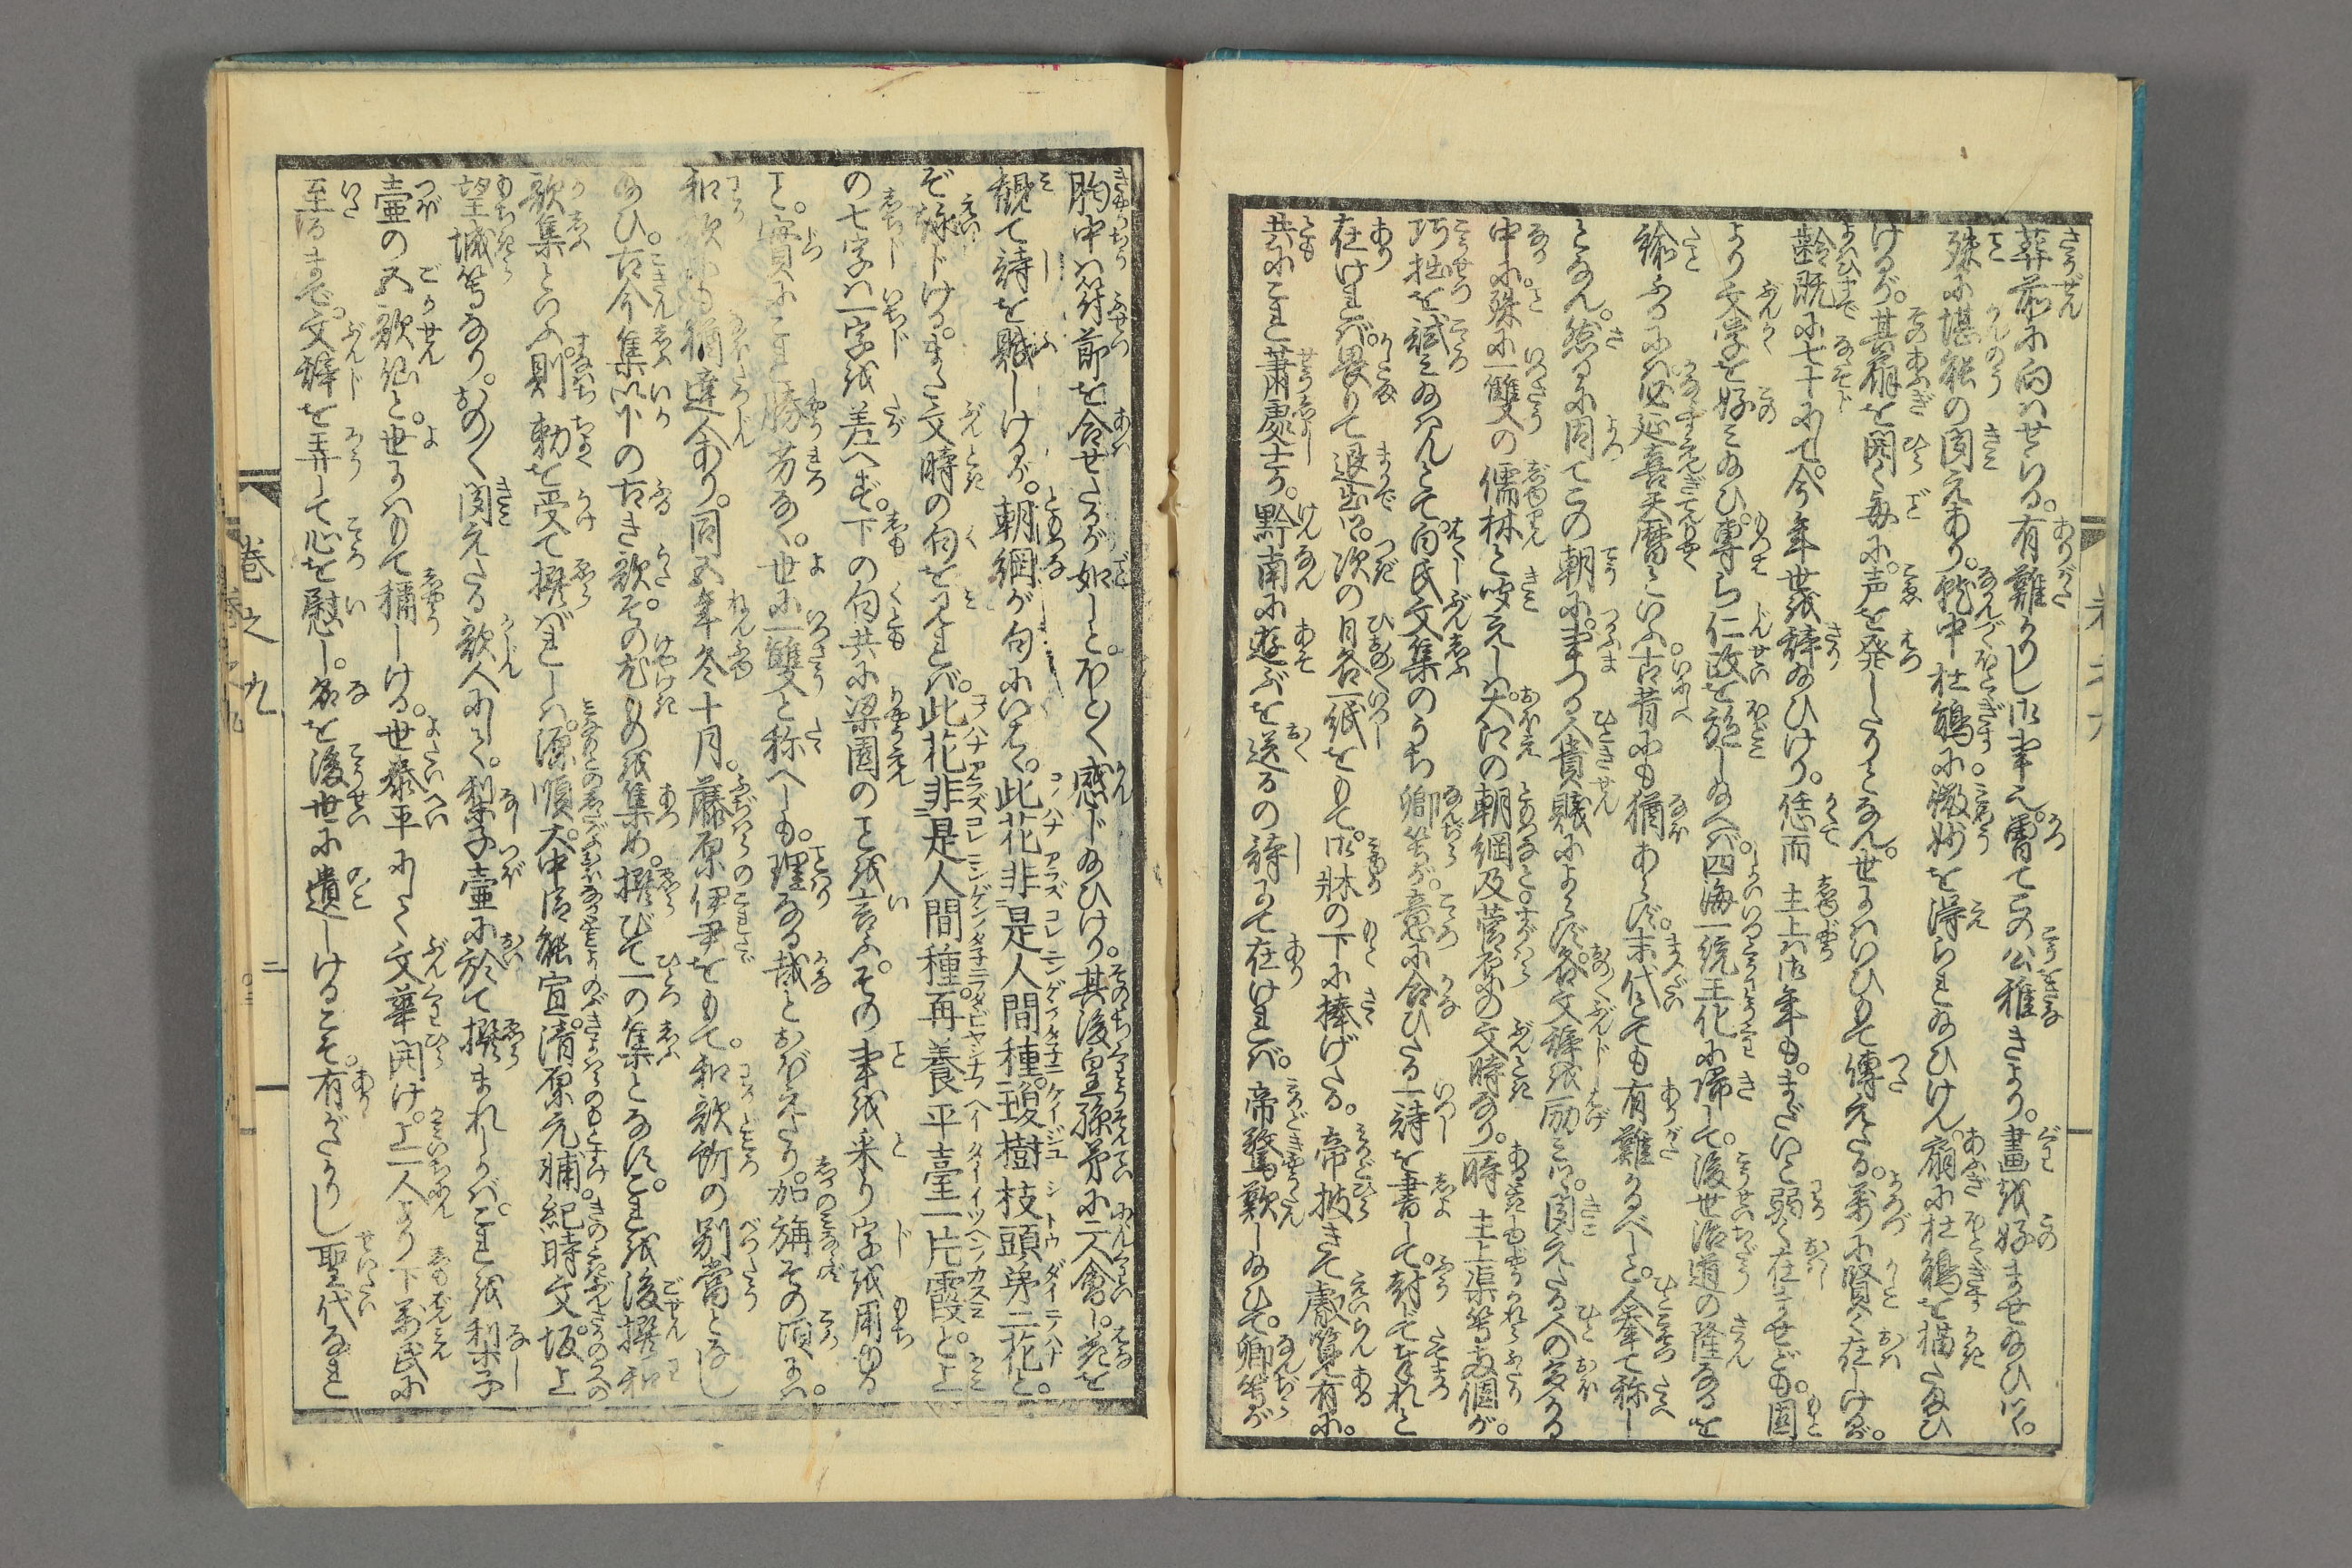 葬前に向はせける。有難かりし御事也。曽てこの公稚きより。畫を好ませ給ひにく。
殊に堪能の聞えあり。就中杜鵑に微妙を得られ給ひけん。扇に杜鵑を描たまひ
けるが。其扇を開く毎に。声を発したりとなん。世にいひもて傳えたる。萬に賢く在しけるが。
齢既に七十にて。今年世を辞給ひけり。恁而 主上は御年も。まだいと弱く在ませども。固
より文学を好み給ひ。専ら仁政を施し給へば。四海一統王化に帰して。後世治道の隆なるを
称ふるには必延喜天暦といふ。古昔にも猶あらず。末代とても有難かるべしと。人挙て称し
となん。然るに因てこの朝に。事つる人貴賤によらず。各文辞を励みに。聞えたる人の多かる
中に。殊に一雙の儒林と聞えしは。大江の朝綱及菅原の文時なり。一時 主上渠等両個が。
巧拙を試み給はんとて。白氏文集のうち卿等が。意に合ひたる一詩を書して。封じて奉れと
在ければ。畏りて退出。次の日各一紙をもて。御牀の下に捧げたる。帝披きて叡覧有に。
共にこれ蕭處士が。黔南に遊ぶを送るの詩にて在ければ。帝驚歎し給ひて。卿等が
胸中は符節を合せたるが如しと。ふかく感じ給ひけり。其後皇孫弟に二人會し。花を
覩て詩を賦しけるが。朝綱が句にいはく。此花非是人間種。瓊樹枝頭第二花と。
ぞ詠じける。また文時の句を見れば。此花非是人間種。再養平臺一片霞と。上
の七字は一字を差へず。下の句共に梁園のことを言ふ。その事を采り字を用ゆる
こと。實にこれ勝劣なく。世に一雙と称へしも。理なる哉とおぼえたり。加旃その頃には。
和歌にも猶達人あり。同五年冬十月。藤原伊尹をもて。和歌所の別當となし
給ひ。古今集以下の古き歌。その尤ものを集め。撰びて一の集となす。これを後撰和
歌集といふ。則 勅を受て撰ばれしは。源順。大中臣能宣。清原元輔。紀時文。坂上
望城等なり。おの〳〵聞えたる歌人にして。梨子壷に於て撰まれしかば。これを梨子
壷の五歌仙と。世にはもて稱しける。世泰平にして文華開け。上一人より下萬民に
至るまで。文辞を弄して心を慰し。名を後世に遺しけるこそ。有がたかりし聖代なれ
巻之九
二